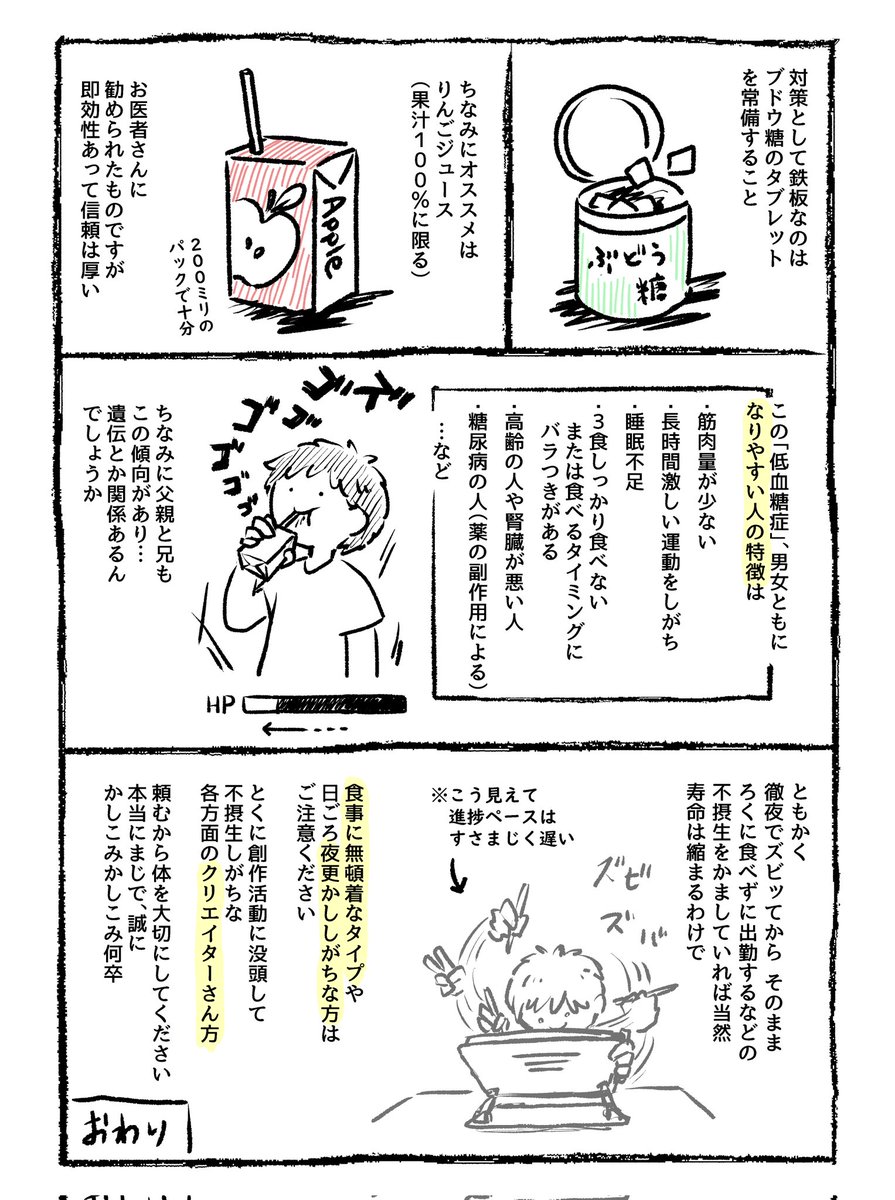 対策として鉄板なのは
ブドウ糖のタブレット
を常備すること
ぶどう
糖
ちなみにオススメは
りんごジュース
(果汁100%に限る)
Apple
200ミリの
パックで十分
お医者さんに
勧められたものですが
即効性あって信頼は厚い
この「低血糖症」、男女ともに
なりやすい人の特徴は
・筋肉量が少ない
・長時間激しい運動をしがち
・睡眠不足
・3食しっかり食べない
または食べるタイミングに
バラつきがある
・高齢の人や腎臓が悪い人
・糖尿病の人(薬の副作用による)
…など
ズゴゴゴゴゴゴ
HP
ちなみに父親と兄も
この傾向があり…
遺伝とか関係あるん
でしょうか
ともかく
徹夜でズビッてから そのまま
ろくに食べずに出勤するなどの
不摂生をかましていれば当然
寿命は縮まるわけで
※こう見えて
進捗ペースは
すさまじく遅い
ズビ
ズバ
食事に無頓着なタイプや
日ごろ夜更かししがちな方は
ご注意ください
とくに創作活動に没頭して
不摂生しがちな
各方面のクリエイターさん方
頼むから体を大切にしてください
本当にまじで、誠に
かしこみかしこみ何卒
おわり